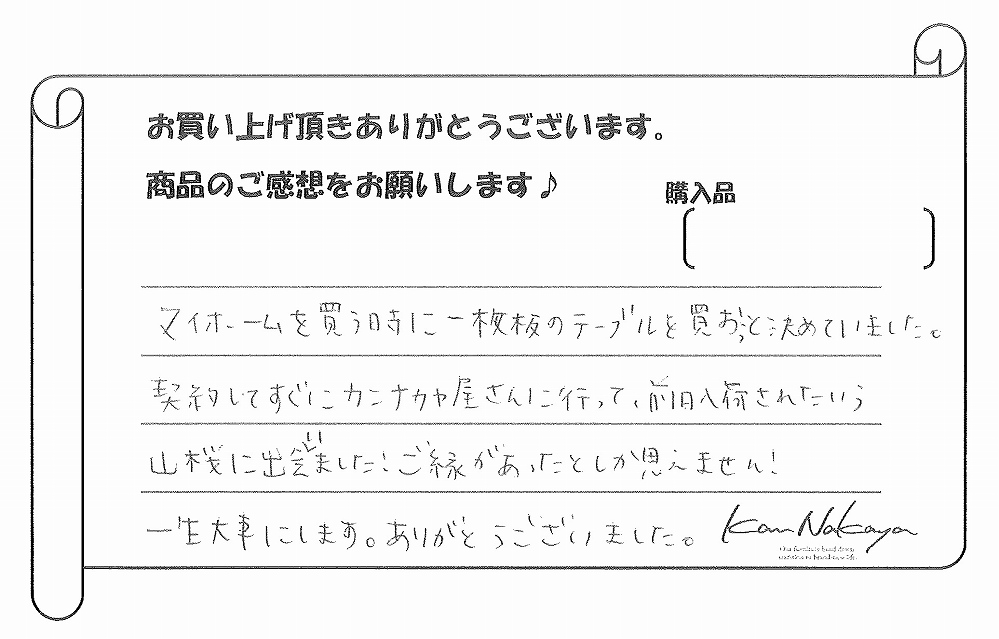 お買い上げ頂きありがとうございます。
商品のご感想をお願いします♪
購入品
マイホームを買う時に一枚板のテーブルを買おっと決めていました。
契約してすぐにカンナカヤ屋さんに行って、前日入荷されたという
山桜に出会いました!ご縁があったとしか思えません!
一生大事にします。ありがとうございました。
KanNakaya